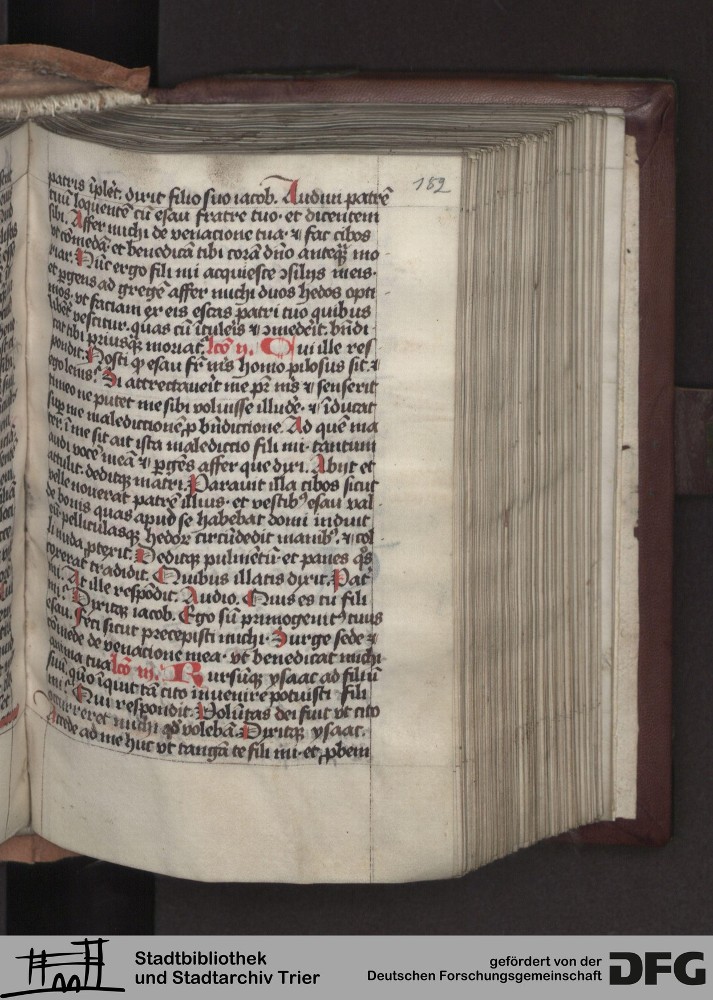 182
patris īplet. dixit filio suo iacob. Audiui patrē
tuū loquentē cū esau fratre tuo et dicentem
sibi. Affer michi de venatione tua ⁊ fac cibos
vt comedā et benedicā tibi corā dn̄o anteqꝫ mo
riar. Nūc ergo fili mi acquiesce ↄsilijs meis
et ꝑgens ad gregē affer michi duos hedos opti
mos vt faciam ex eis escas patri tuo quibus
libēt vescitur. quas cū ītuleis ⁊ ↄmederit. bn̄di
cat tibi priusqꝫ moriat. lcō ij. Cui ille res
pondit. Nosti ꝙ esau fr̄ me͛s homo pilosus sit. ⁊
ego lenis. Si attrectauerit me pr̄ me͛s ⁊ senserit
timeo ne putet me sibi voluisse illude. ⁊ īducat
sup me maledictionē ꝓ bn̄dictione. Ad quē ma
ter. ī me sit ait ista maledictio fili mi tantum
audi vocē meā ⁊ ꝑgēs affer que dixi. Abijt et
attulit. deditqꝫ matri. Parauit illa cibos sicut
velle nouerat patrē illius et vestibꝫ esau val
de bonis quas apud se habebat domi induit
eū pelliculasqꝫ hedoꝝ circūdedit manibꝫ. ⁊ col
li nuda ꝓtexit. Deditqꝫ pulmētū et panes qs̄
coxerat tradidit. Quibus illatis dixit. Pat
mi. At ille respōdit. Audio. Quis es tu fili
mi. Dixitqꝫ iacob. Ego sū primogenitꝰ tuus
esau. Feci sicut precepisti michi Surge sede ⁊
comede de venatione mea vt benedicat michi
anima tua lcō iij. Rursūqꝫ ysaac ad filiū
suū. quō īquit tā cito inuenire potuisti fili
mi. Qui respondit. Volūtas dei fuit vt cito
occurreret michi qd̄ volebā. Dixitqꝫ ysaac.
Accede ad me huc vt tangā te fili mi et ꝓbem
Stadtbibliothek
und Stadtarchiv Trier
gefördert von der
Deutschen Forschungsgemeinschaft
DFG